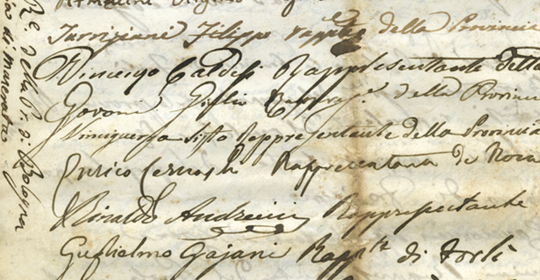 Turriziani Filippo rapp.te della Provincia
Vincenzo Caldesi Rappresentante della
Govoni Giulio Rappres.e della Provin
Vinciguerra Sisto Rappresentante della Provincia
Enrico Cernuschi Rappresentante di Roma
Rinaldo Andreini Rappresentante
Guglielmo Gajani Rapp.te di Forlì
R.e della P. di Bologna
di Macerata